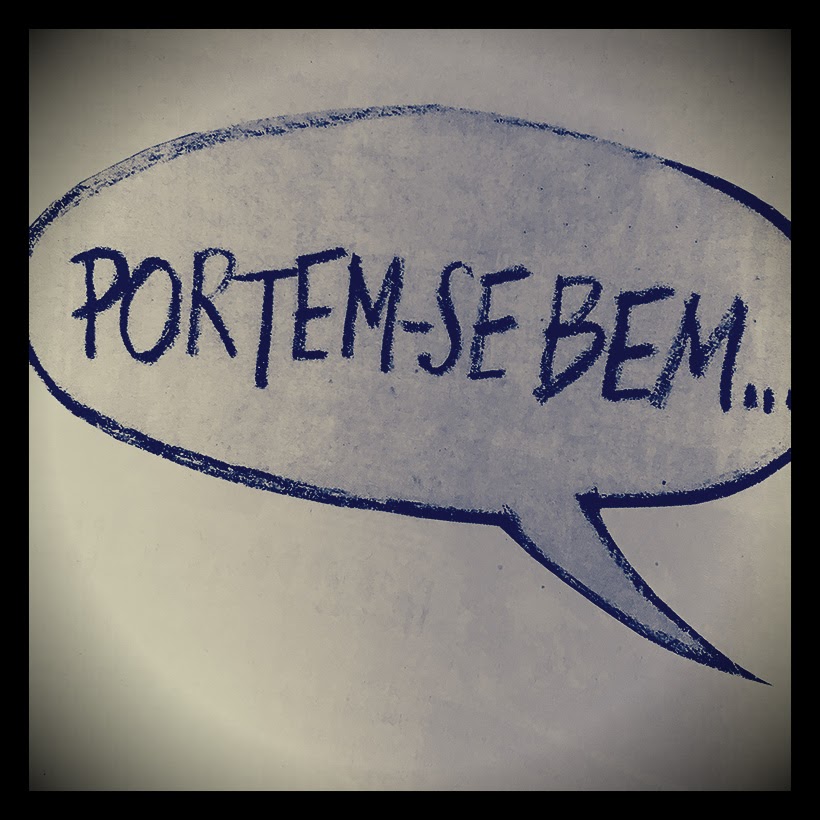 PORTEM-SE BEM...